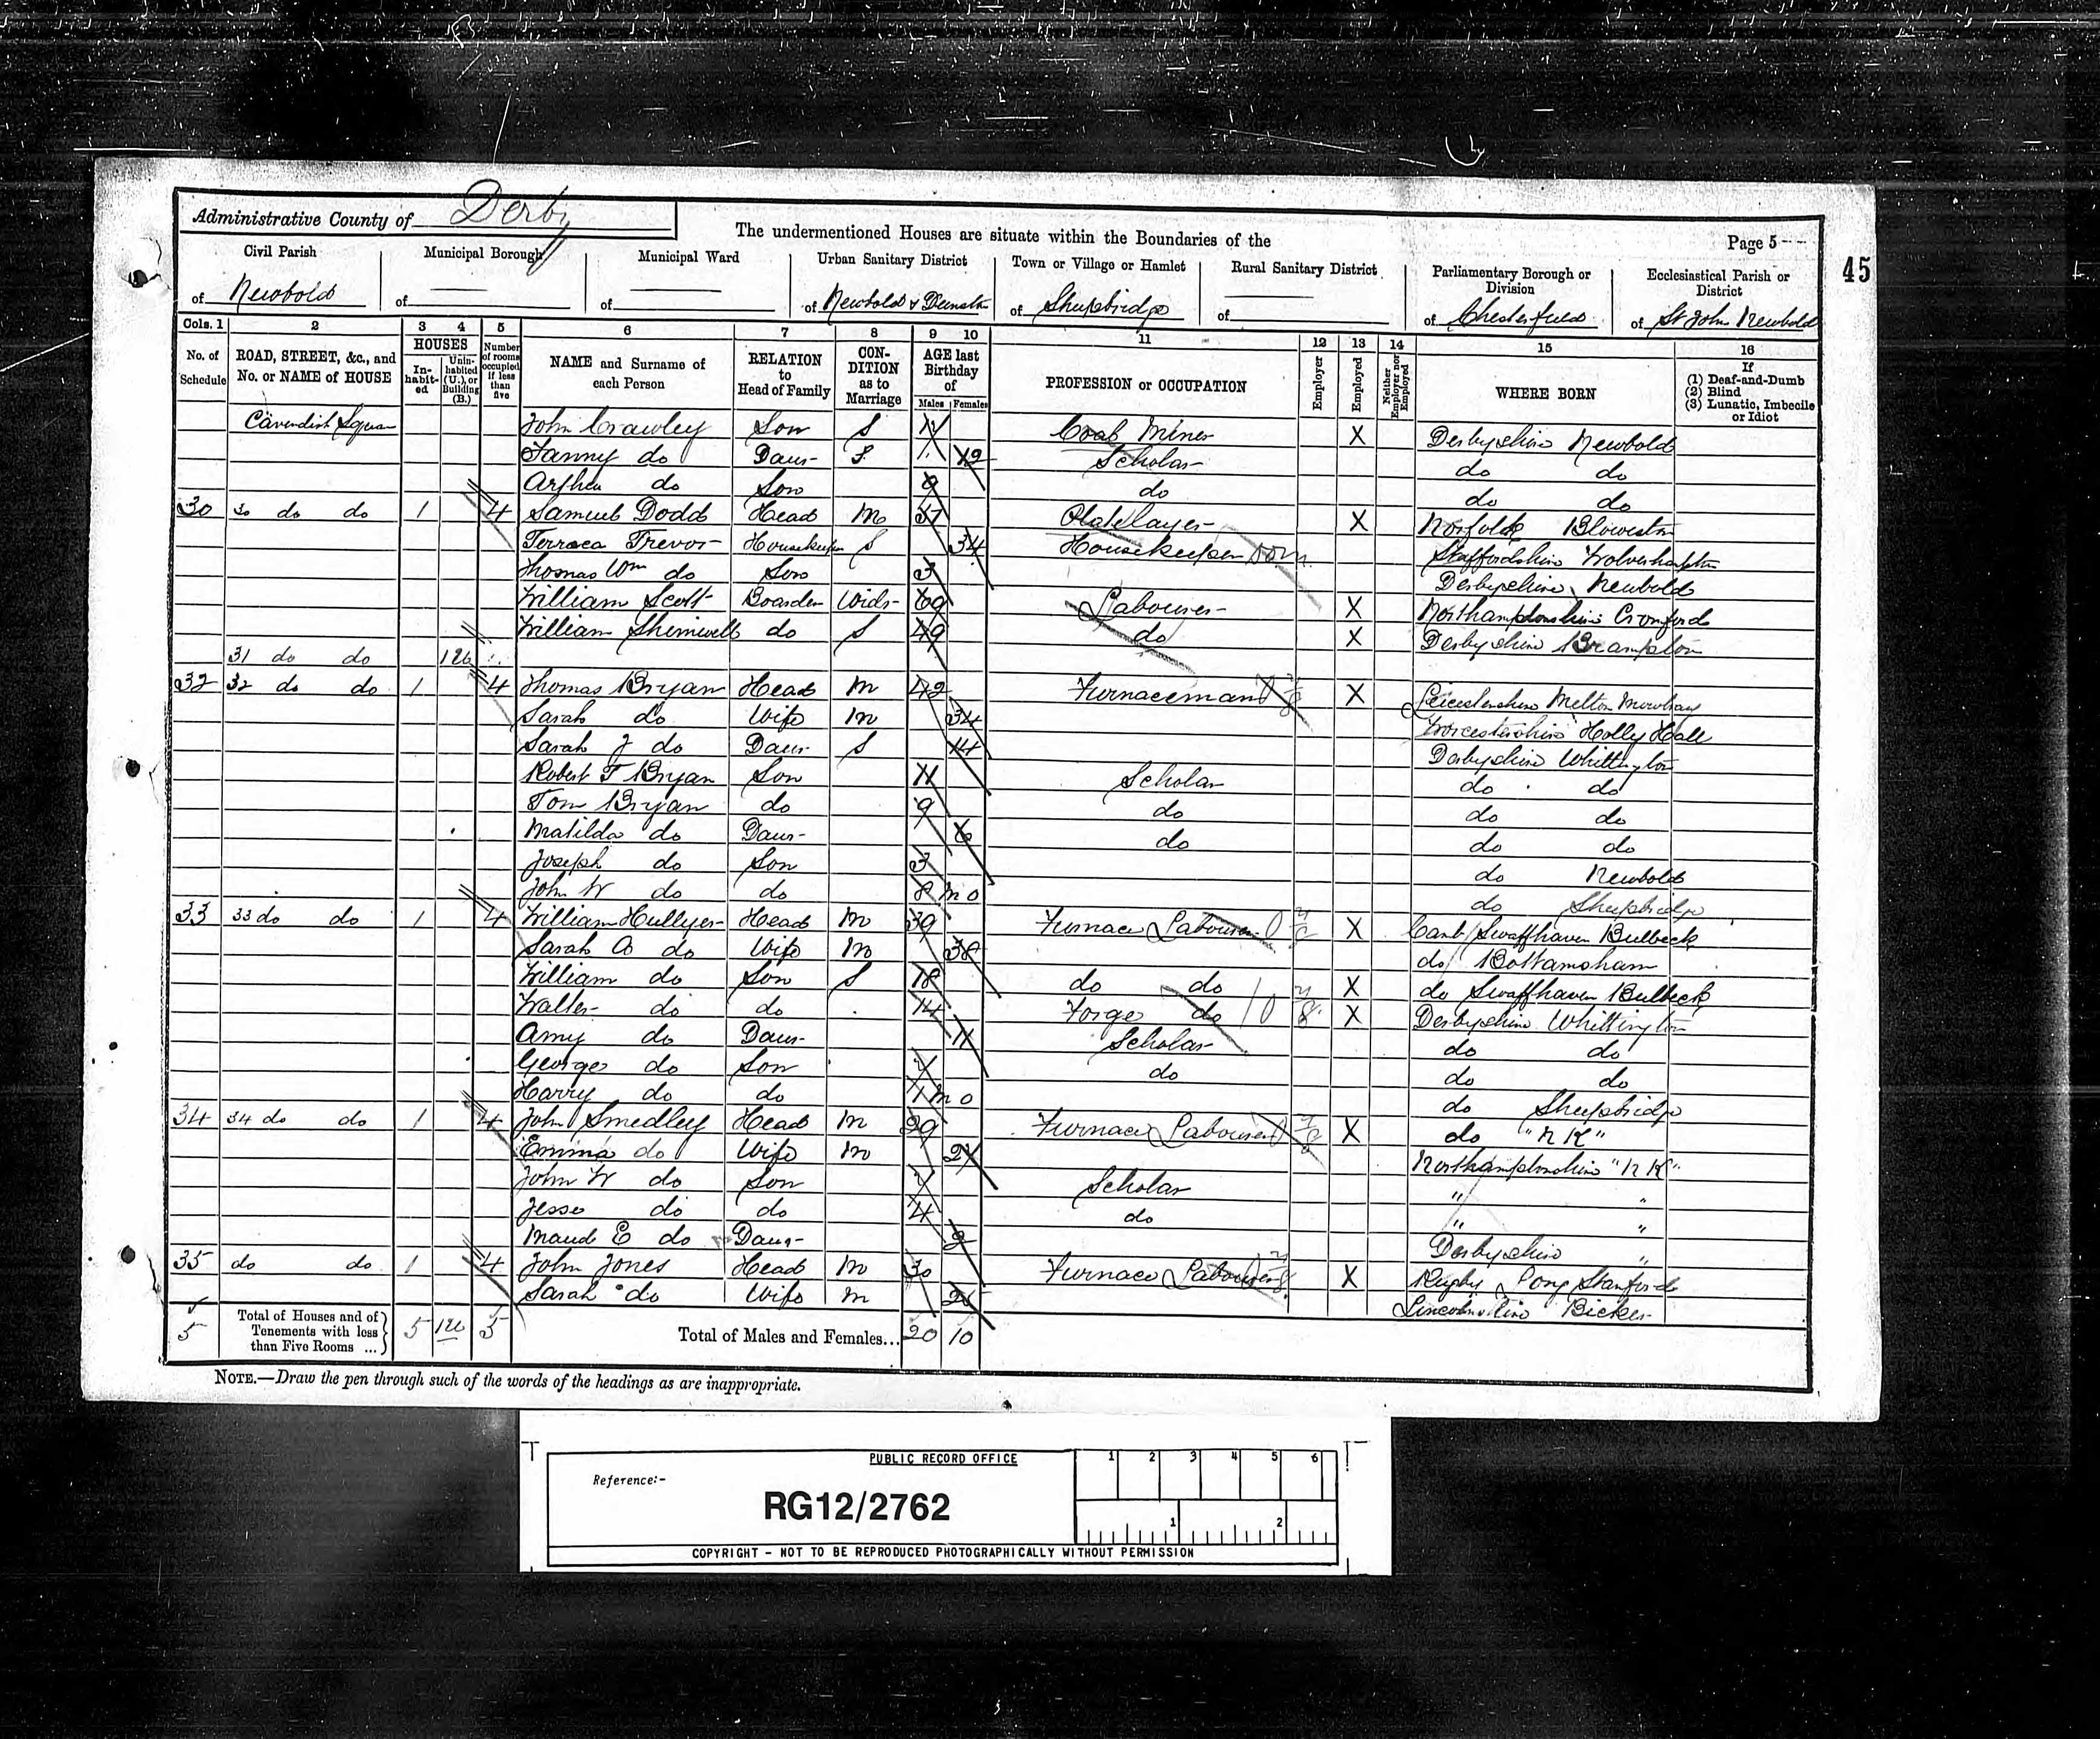 Administrative County of Derby
The undermentioned Houses are situate within the Boundaries of the
Page 5
45
Civil Parish of Newbold
Municipal Borough of
Municipal Ward of
Urban Sanitary District of Newbold & Dunston
Town or Village or Hamlet of Sheepbridge
Rural Sanitary District of
Parliamentary Borough or Division of Chesterfield
Ecclesiastical Parish or District of St John Newbold
Cols. 1 2 3 4 5 6 7 8 9 10 11 12 13 14 15 16
No. of Schedule
ROAD, STREET, &c., and No. or NAME of HOUSE
HOUSES
In-habit-ed
Unin-habited (U.), or Building (B.)
Number of rooms occupied if less than five
NAME and Surname of each Person
RELATION to Head of Family
CON-DITION as to Marriage
AGE last Birthday of
Males Females
PROFESSION or OCCUPATION
Employer
Employed
Neither Employer nor Employed
WHERE BORN
If (1) Deaf-and-Dumb (2) Blind (3) Lunatic, Imbecile or Idiot
Cavendish Square John Crawley Son S Coal Miner X Derbyshire Newbold
Fanny do Daur S 12 Scholar do do
Arthur do Son 9 do do do
30 30 do do 1 4 Samuel Dodd Head M 37 Platelayer X Norfolk
Trevor Housekeeper S 34 Housekeeper Dom Staffordshire Wolverhampton
Thomas Wm do Son 3 Derbyshire Newbold
William Scott Boarder Widr 69 Labourer X Northamptonshire Cranford
William Shimwell do S 49 do X Derbyshire Brampton
31 do do 1
32 32 do do 1 4 Thomas Bryan Head M 42 Furnaceman X Leicestershire Melton Mowbray
Sarah do Wife M 34 Worcestershire Holly Hall
Sarah J do Daur S 14 Derbyshire Whittington
Robert T Bryan Son 11 Scholar do do
Tom Bryan do 9 do do do
Matilda do Daur 6 do do do
Joseph do Son 3 do Newbold
John W do do 8 mo do Sheepbridge
33 33 do do 1 4 William Hullyer Head M 39 Furnace Labourer X Camb Swaffhaven Bulbeck
Sarah A do Wife M 38 do Bottamsham
William do Son S 18 do do X do Swaffhaven Bulbeck
Walter do do 14 Forge do X Derbyshire Whittington
Amy do Daur 11 Scholar do do
George do Son 7 do do do
Harry do do mo do Sheepbridge
34 34 do do 1 4 John Smedley Head M 29 Furnace Labourer X do "N K"
Emma do Wife M Northamptonshire "N K"
John W do Son 7 Scholar " "
Jesse do do 4 do " "
Maud E do Daur 2 Derbyshire "
35 do do 1 4 John Jones Head M 30 Furnace Labourer X Rugby Long Stanford
Sarah do Wife M Lincolnshire Bicker
5 Total of Houses and of Tenements with less than Five Rooms ... 5 5 Total of Males and Females... 20 10
NOTE.—Draw the pen through such of the words of the headings as are inappropriate.
PUBLIC RECORD OFFICE
1 2 3 4 5 6
Reference:-
RG12/2762
1 2
COPYRIGHT - NOT TO BE REPRODUCED PHOTOGRAPHICALLY WITHOUT PERMISSION